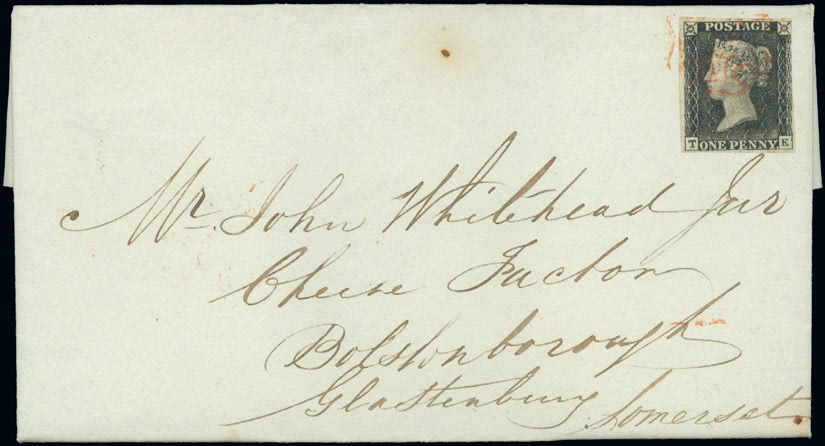 POSTAGE
T ONE PENNY E
Mr. John Whitehead Jur
Cheese Factor
Bolstonborough
Glastenbury Somerset